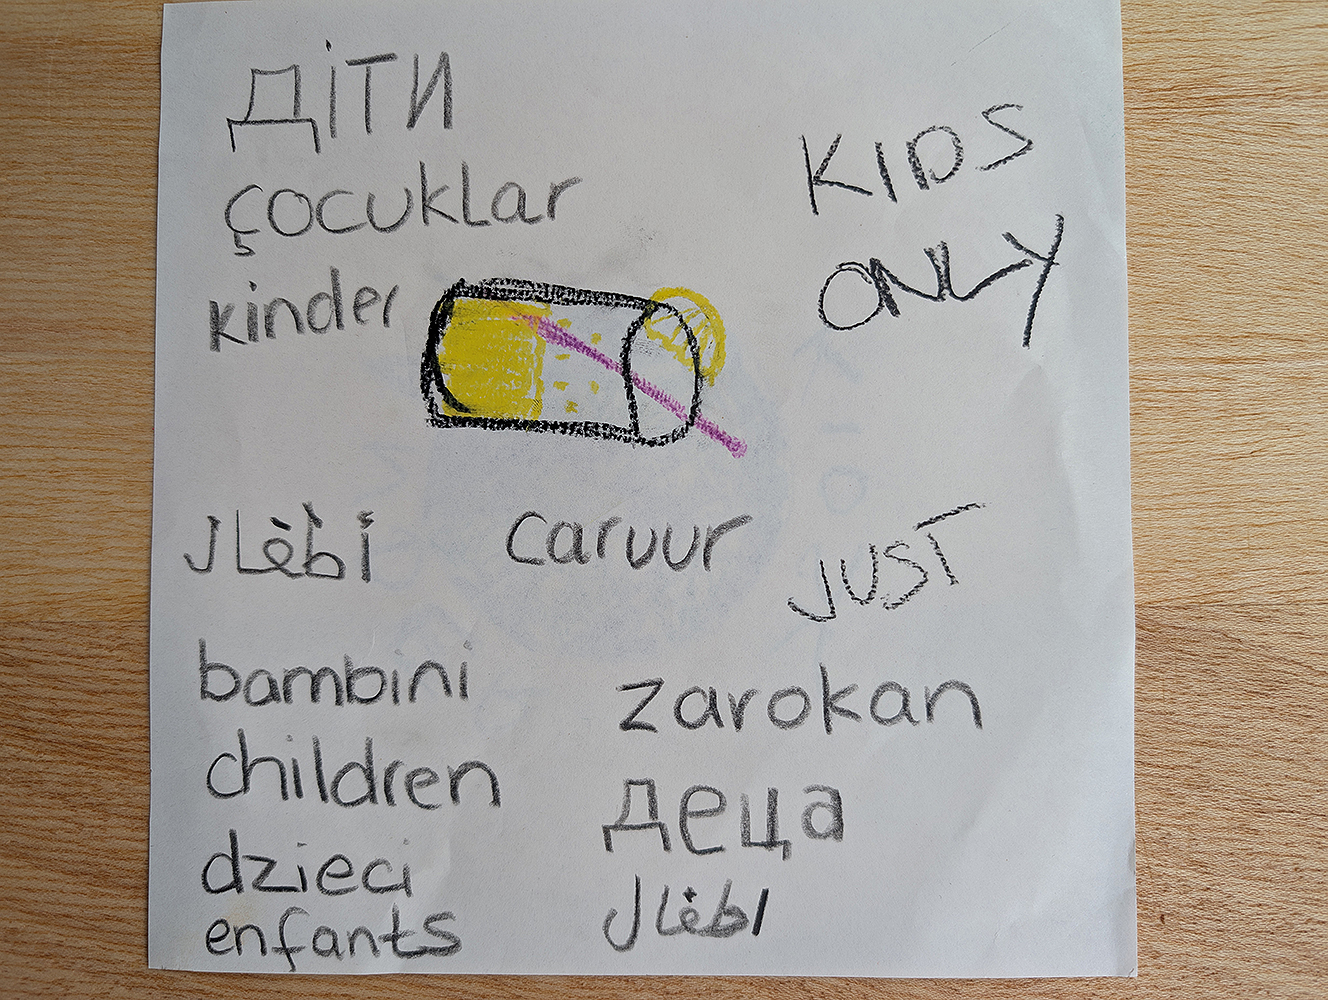 діти
çocuklar
kinder
KIDS
ONLY
أطفال
caruur
JUST
bambini
children
dzieci
enfants
zarokan
деца
اطفال